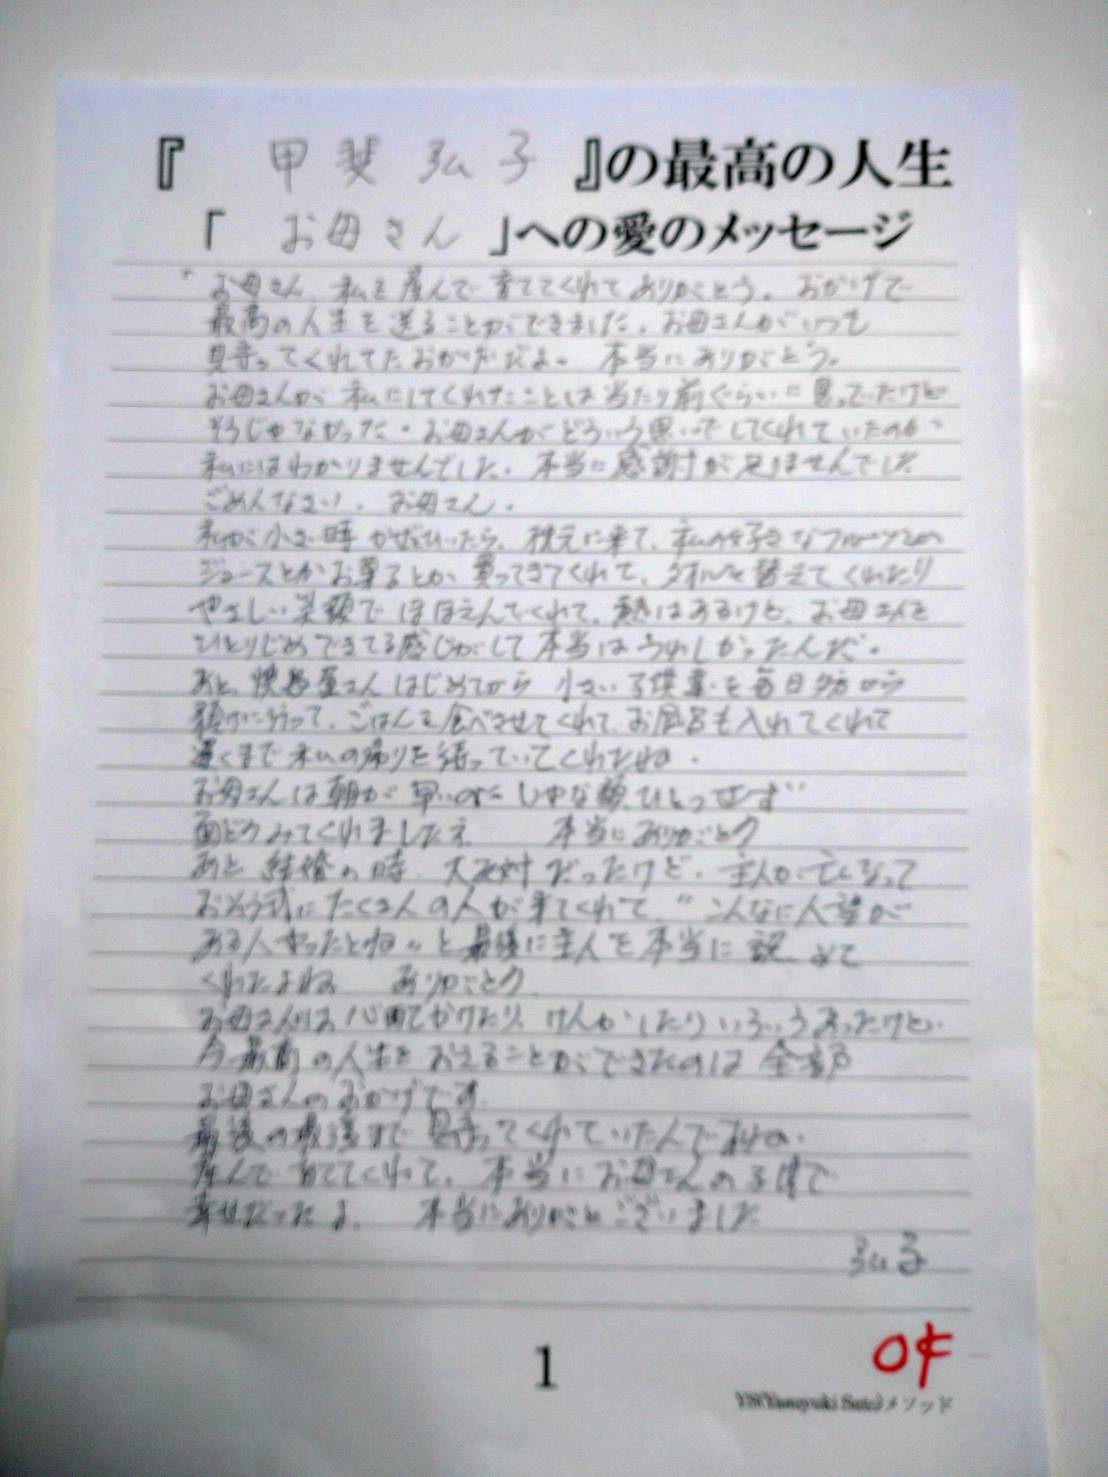 『 甲斐 弘子 』の最高の人生
「 お母さん 」への愛のメッセージ
お母さん、私を産んで育ててくれてありがとう。おかげで
最高の人生を送ることができました。お母さんがいつも
見守ってくれてたおかげだよ。 本当にありがとう。
お母さんが私にしてくれたことは当たり前ぐらいに思っていたけど
そうじゃなかった。お母さんがどういう思いでしてくれていたのか
私にはわかりませんでした。本当に感謝が足りませんでした
ごめんなさい。お母さん。
私が小さい時かぜひいたら、枕元に来て、私の好きなフルーツとか
ジュースとかお菓子とか、買ってきてくれて、タオルを替えてくれたり
やさしい笑顔でほほえんでくれて、熱はあるけど、お母さんを
ひとりじめできてる感じがして本当はうれしかったんだ。
あと、 屋さんはじめてから 小さい子供達を毎日夕方から
預けに行って、ごはんを食べさせてくれて、お風呂も入れてくれて
遅くまで私の帰りを待っていてくれたね。
お母さんは朝が早いのにいやな顔ひとつせず
面どうみてくれましたネ 本当にありがとう
あと 結婚の時 大反対だったけど、主人が亡くなって
おそう式にたくさんの人が来てくれて、“こんなに人望が
ある人やったとね”と最後に主人を本当に認めて
くれたよね ありがとう
お母さんには心配かけたり、けんかしたりいろいろあったけど
今最高の人生をおえることができたのは全部
お母さんのおかげです
最後の最後まで見守ってくれていたんですね。
産んで育ててくれて、本当にお母さんの子供で
幸せだったよ。 本当にありがとうございました
弘子
1
YS(Yasuyuki Sato)メソッド